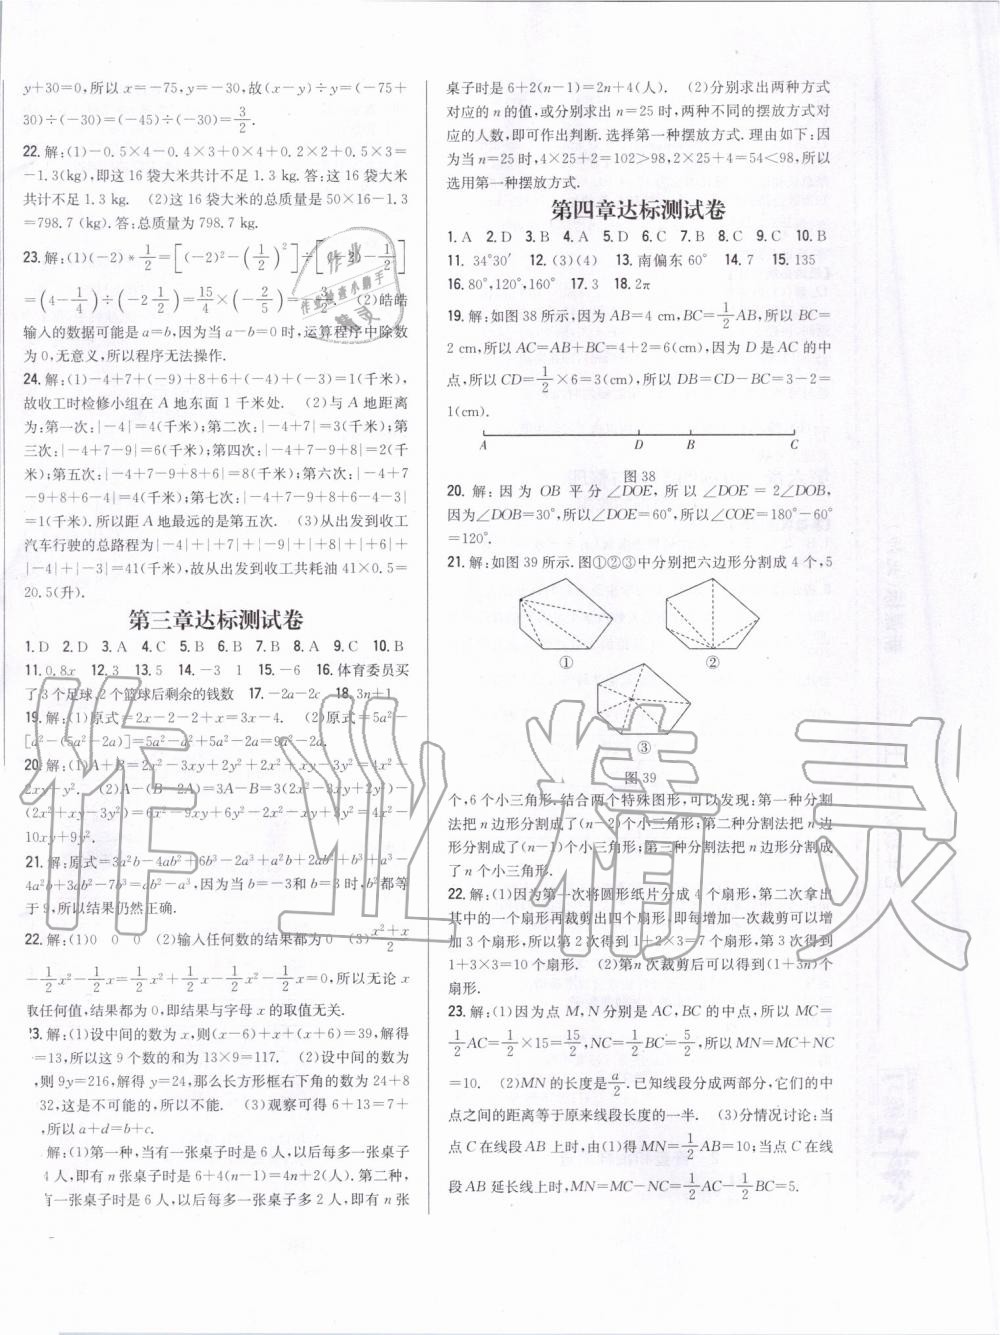 y+30=0,所以 x=-75,y=-30,故(x-y)÷y=(-75+
30)÷(-30)=(-45)÷(-30)=3/2.
22.解:(1)-0.5×4-0.4×3+0×4+0.2×2+0.5×3=
-1.3(kg),即这 16 袋大米共计不足 1.3 kg.答:这 16 袋大米
共计不足 1.3 kg. (2)这 16 袋大米的总质量是 50×16-1.3
=798.7 (kg).答:总质量为 798.7 kg.
23.解:(1)(-2)*1/2=[(-2)²-(1/2)²]÷[(-2)-1/2]
=(4-1/4)÷(-2 1/2)=15/4×(-2/5)=-3/2. (2)皓皓
输入的数据可能是 a=b,因为当 a-b=0 时,运算程序中除数
为 0,无意义,所以程序无法操作.
24.解:(1)-4+7+(-9)+8+6+(-4)+(-3)=1(千米),
故收工时检修小组在 A 地东面 1 千米处. (2)与 A 地距离
为:第一次:|-4|=4(千米);第二次:|-4+7|=3(千米);第
三次:|-4+7-9|=6(千米);第四次:|-4+7-9+8|=2(千
米);第五次:|-4+7-9+8+6|=8(千米);第六次:|-4+7
-9+8+6-4|=4(千米);第七次:|-4+7-9+8+6-4-3|
=1(千米).所以距 A 地最远的是第五次. (3)从出发到收工
汽车行驶的总路程为|-4|+|+7|+|-9|+|+8|+|+6|+
|-4|+|-3|=41(千米),故从出发到收工共耗油 41×0.5=
20.5(升).
第三章达标测试卷
1.D 2.D 3.A 4.C 5.B 6.B 7.B 8.A 9.C 10.B
11.0.8x 12.3 13.5 14.-3 1 15.-6 16.体育委员买
了 3 个足球、2 个篮球后剩余的钱数 17.-2a-2c 18.3n+1
19.解:(1)原式=2x-2-2+x=3x-4. (2)原式=5a²-
[a²-(5a²-2a)]=5a²-a²+5a²-2a=9a²-2a.
20.解:(1)A+B=2x²-3xy+2y²+2x²+xy-3y²=4x²-
2xy-y². (2)A-(B-2A)=3A-B=3(2x²-3xy+2y²)-
(2x²+xy-3y²)=6x²-9xy+6y²-2x²-xy+3y²=4x²-
10xy+9y².
21.解:原式=3a²b-4ab²+6b³-2a³+a²b+2ab²+b³+a³-
4a²b+3ab²-7b³=ab²-a³,因为当 b=-3和 b=3 时,b²都等
于 9,所以结果仍然正确.
22.解:(1)0 0 0 (2)输入任何数的结果都为 0 (3)(x²+x)/2
-1/2x²-1/2x=1/2x²+1/2x-1/2x²-1/2x=0,所以无论 x
取任何值,结果都为 0,即结果与字母 x 的取值无关.
23.解:(1)设中间的数为 x,则(x-6)+x+(x+6)=39,解得
=13,所以这 9 个数的和为 13×9=117. (2)设中间的数为
,则 9y=216,解得 y=24,那么长方形框右下角的数为 24+8
32,这是不可能的,所以不能. (3)观察可得 6+13=7+
,所以 a+d=b+c.
解:(1)第一种,当有一张桌子时是 6 人,以后每多一张桌子
4 人,即有 n 张桌子时是 6+4(n-1)=4n+2(人).第二种,
有一张桌子时是 6 人,以后每多一张桌子多 2 人,即有 n 张
桌子时是 6+2(n-1)=2n+4(人). (2)分别求出两种方式
对应的 n 的值,或分别求出 n=25 时,两种不同的摆放方式对
应的人数,即可作出判断.选择第一种摆放方式.理由如下:因
为当 n=25 时,4×25+2=102>98,2×25+4=54<98,所以
选用第一种摆放方式.
第四章达标测试卷
1.A 2.D 3.B 4.A 5.D 6.C 7.B 8.C 9.C 10.B
11.34°30′ 12.(3)(4) 13.南偏东 60° 14.7 15.135
16.80°,120°,160° 17.3 18.2π
19.解:如图 38 所示,因为 AB=4 cm,BC=1/2AB,所以 BC=
2 cm,所以 AC=AB+BC=4+2=6(cm),因为 D 是 AC 的中
点,所以 CD=1/2×6=3(cm),所以 DB=CD-BC=3-2=
1(cm).
A D B C
图 38
20.解:因为 OB 平分∠DOE,所以∠DOE=2∠DOB,
因为∠DOB=30°,所以∠DOE=60°,所以∠COE=180°-60°
=120°.
21.解:如图 39 所示.图①②③中分别把六边形分割成 4 个,5
① ②
③
图 39
个,6 个小三角形.结合两个特殊图形,可以发现:第一种分割
法把 n 边形分割成了(n-2)个小三角形;第二种分割法把 n 边
形分割成了(n-1)个小三角形;第三种分割法把 n 边形分割成
了 n 个小三角形.
22.解:(1)因为第一次将圆形纸片分成 4 个扇形,第二次拿出
其中的一个扇形再裁剪出四个扇形,即每增加一次裁剪可以增
加 3 个扇形,所以第 2 次得到 1+2×3=7 个扇形,第 3 次得到
1+3×3=10 个扇形. (2)第 n 次裁剪后可以得到(1+3n)个
扇形.
23.解:(1)因为点 M,N 分别是 AC,BC 的中点,所以 MC=
1/2AC=1/2×15=15/2,NC=1/2BC=5/2,所以 MN=MC+NC
=10. (2)MN 的长度是a/2.已知线段分成两部分,它们的中
点之间的距离等于原来线段长度的一半. (3)分情况讨论:当
点 C 在线段 AB 上时,由(1)得 MN=1/2AB=10;当点 C 在线
段 AB 延长线上时,MN=MC-NC=1/2AC-1/2BC=5.
作业精灵